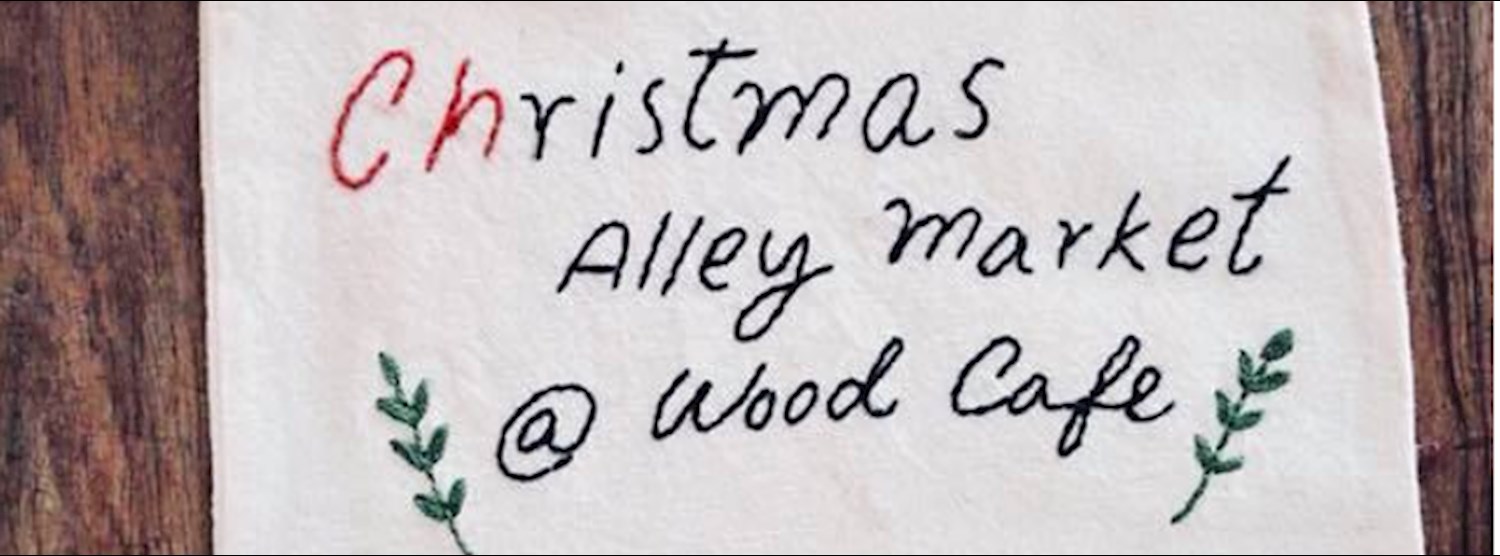 Christmas
Alley market
@ Wood Cafe